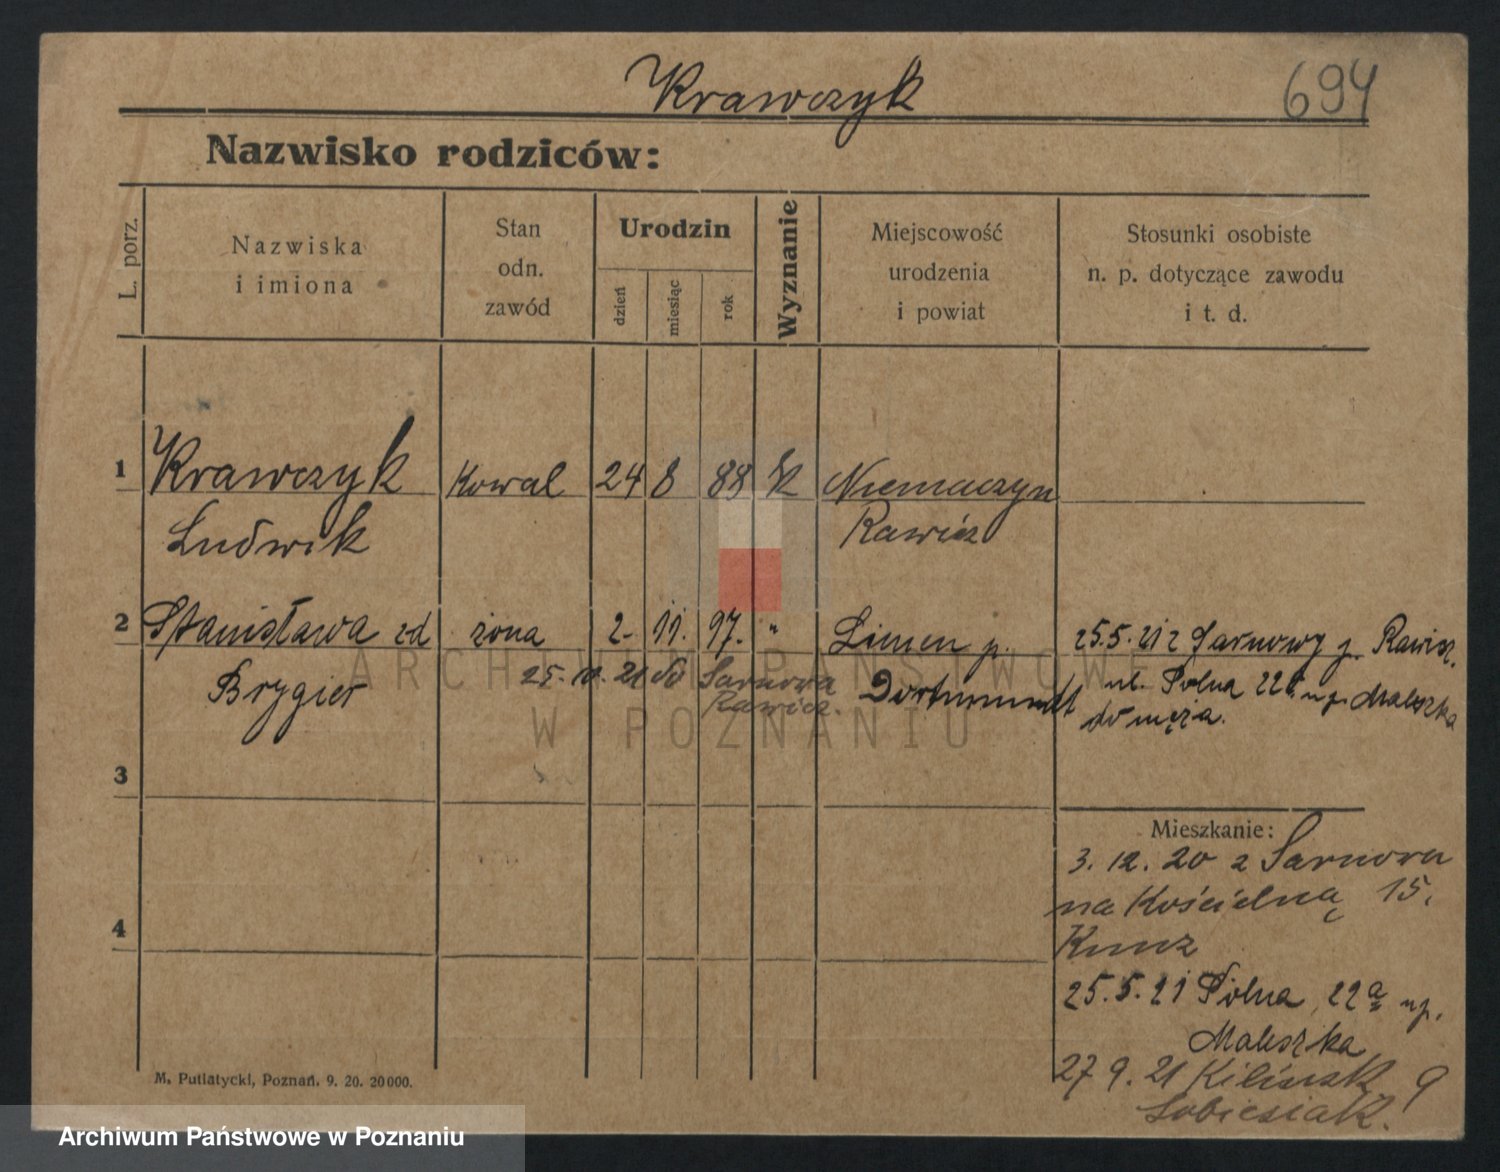 Krawczyk
694
Nazwisko rodziców:
L. porz.
Nazwiska
i imiona
Stan
odn.
zawód
Urodzin
dzień
miesiąc
rok
Wyznanie
Miejscowość
urodzenia
i powiat
Stosunki osobiste
n. p. dotyczące zawodu
i t. d.
1 Krawczyk Kowal 24 8 88 K Niemaczyn
Ludwik Rawicz
2 Stanisława zd żona 2. 11. 97. " Linnen p. 25.5.21 z Sarnowy p. Rawicz.
Brygier 25. 10. 21 do Sarnowa Dortmundt ul. Polna 22a np. Maleszka
Rawicz. do męża.
3
Mieszkanie:
3. 12. 20 z Sarnowa
na Kościelną 15.
4
Kunz
25.5.21 Polna 22a np.
Maleszka
27 9. 21 Kilińsk 9
Sobiesiak.
M. Putiatycki, Poznań. 9. 20. 20000.
ARCHIWUM PAŃSTWOWE
W POZNANIU
Archiwum Państwowe w Poznaniu